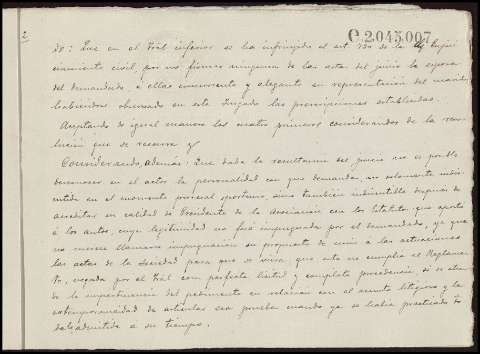 2
C 2.045.007
do: Que en el Tral inferior se ha infringido el art 130 de la Ley Enjui
ciamiento civil, por no firmar ninguna de las actas del juicio la esposa
del demandado, á ellas concurrente y alegante en representación del marido,
habiéndose observado en este Juzgado las prescripciones establecidas.
Aceptando de igual manera los cuatro primeros considerandos de la reso-
lución que se recurre y
Considerando, además: Que dada la resultancia del juicio no es posible
desconocer en el actor la personalidad con que demanda no solamente indis-
cutida en el momento procesal oportuno, sino también indiscutible después de
acreditar su calidad de Presidente de la Asociación con los Estatutos que aportó
á los autos, cuya legitimidad no fué impugnada por el demandado, ya que
no merece llamarse impugnación su propuesta de unir á las actuaciones
las actas de la Sociedad para que se viera que esta no cumplía el Reglamen-
to, negada por el Tral con perfecta licitud y completa procedencia, si se atien-
de la impertinencia del pedimento en relación con el asunto litigioso y la
extemporaneidad de articular esa prueba cuando ya se había practicado la
admitida a su tiempo.